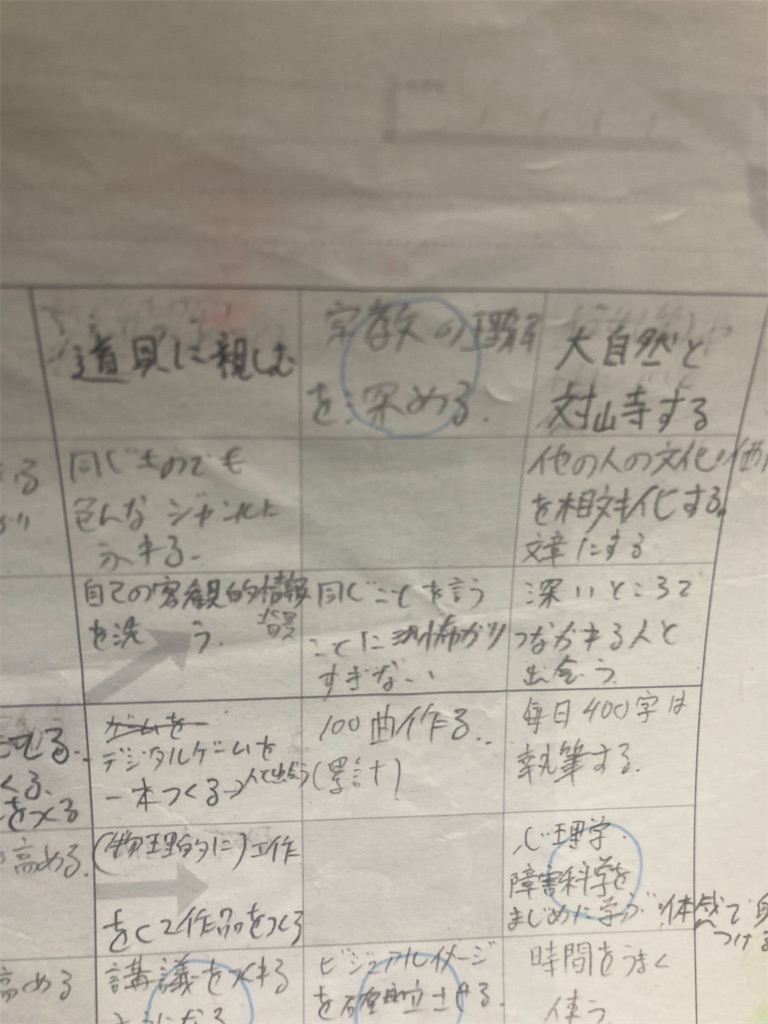 道具に親しむ
宗教の理解
を深める.
大自然と
対峙する
同じものでも
色んな ジャンルに
他の人の文化
を相対化する.
文章にする
自己の客観的情報
背景
を洗う.
同じことを言う
ことに恐怖がり
すぎない
深いところで
つながれる人と
出会う.
ゲームを
デジタルゲームを
一本つくる→人と出会う
100曲作る..
(累計)
毎日400字は
執筆する.
くる.
をつくる
高める.
(物理的に)工作
をして作品をつくる
心理学.
障害科学を
まじめに学ぶ
体感で
つける
高める
講義をつくれる
ようになる
ビジュアルイメージ
を確立させる.
時間をうまく
使う